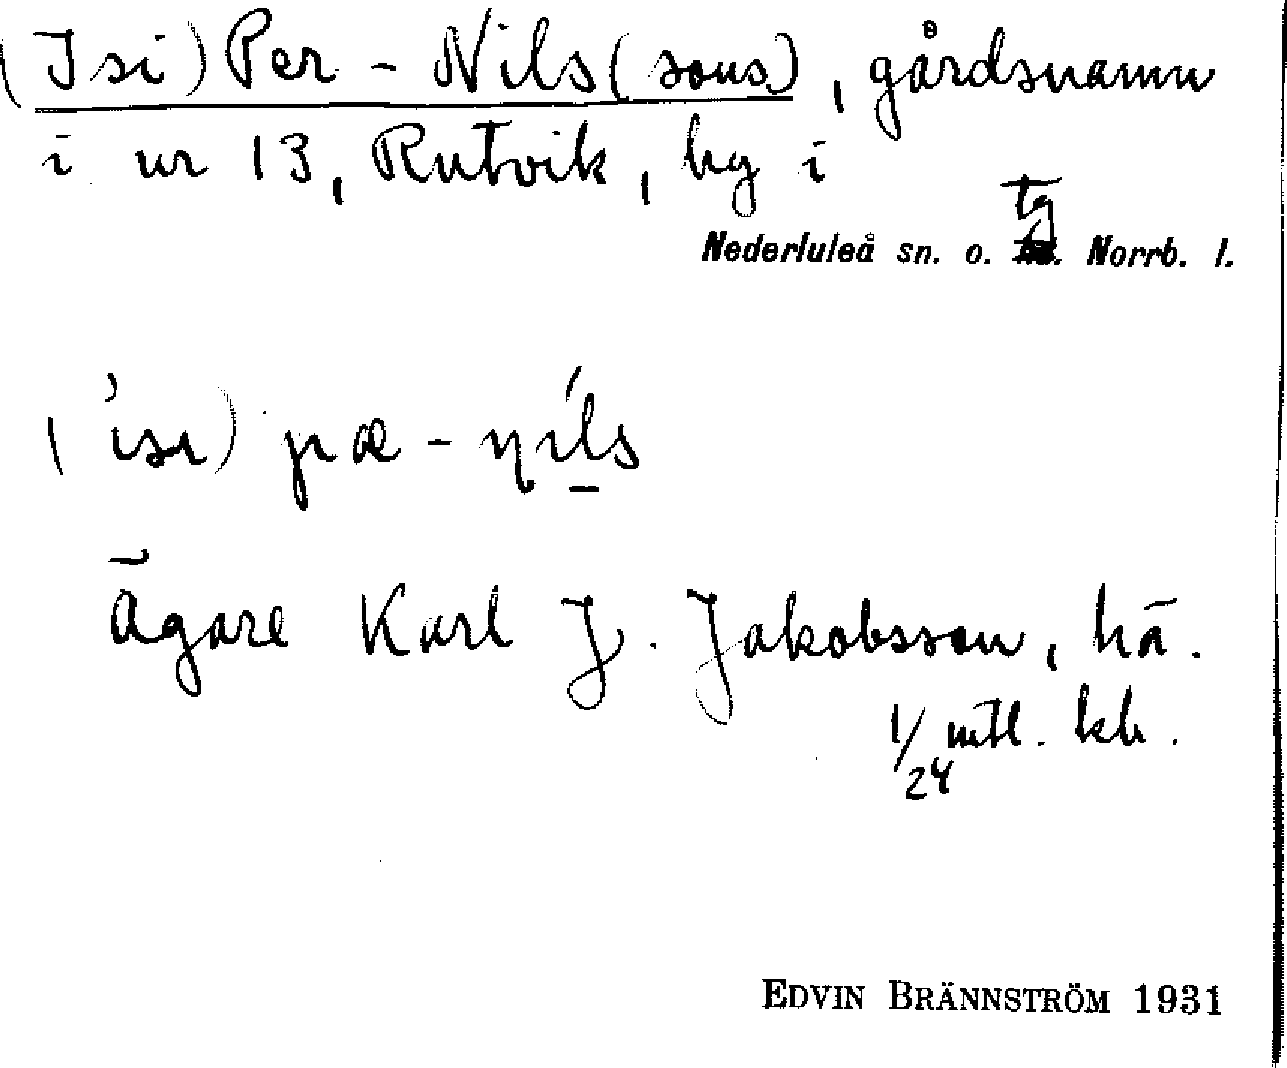 (Isi) Per-Nils(sons), gårdsnamn
i nr 13, Rutvik, by i
Nederluleå sn. o. tg Norrb. l.
('isi) pæ-nils
Ägare Karl J. Jakobsson, hä.
1/24 mtl. kh.
EDVIN BRÄNNSTRÖM 1931